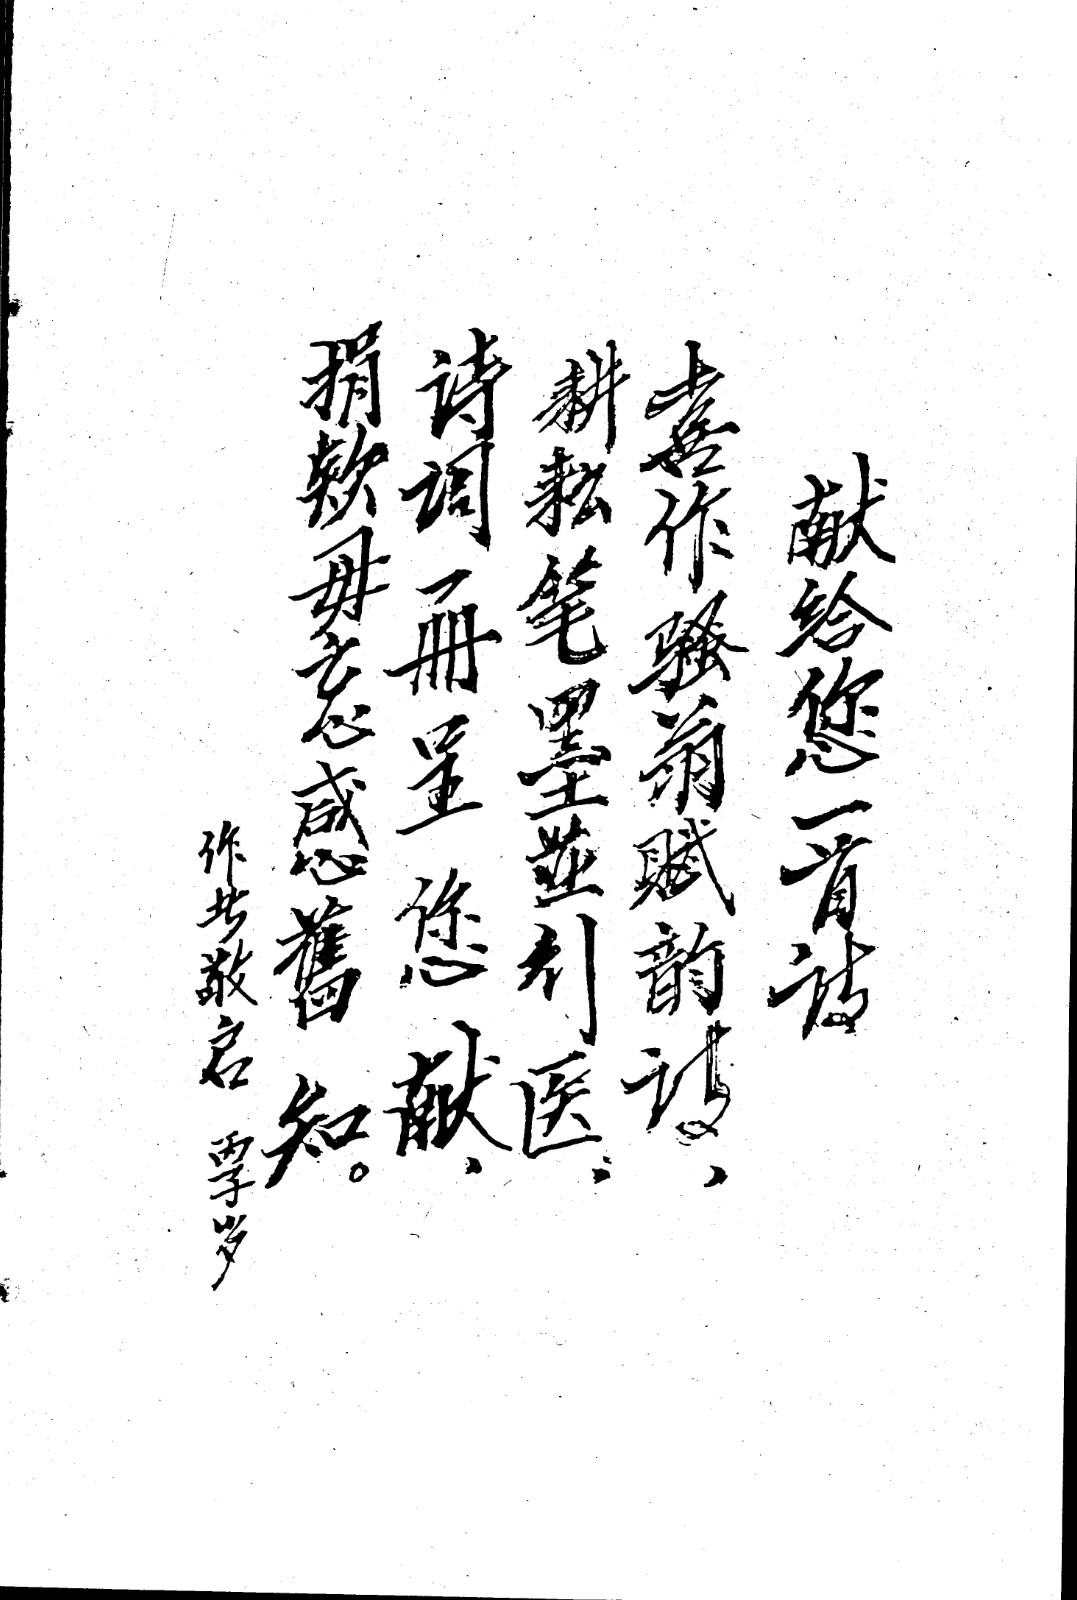 献给您一首诗
喜作骚翁赋韵诗、
耕耘笔墨並列医；
诗词一册呈您献、
捐款毋忘感舊知。
作者敬启 丙子岁